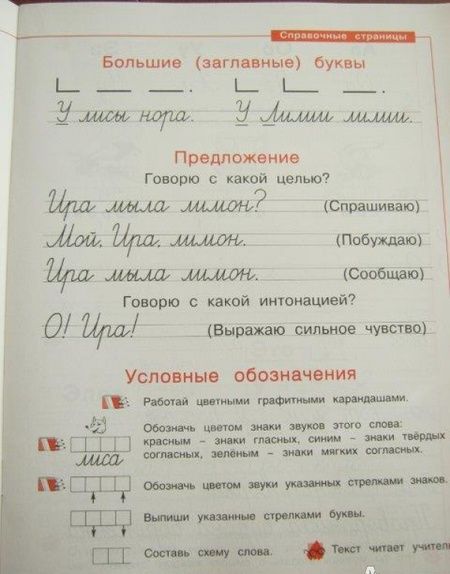 Справочные страницы
Большие (заглавные) буквы
У лисы нора. У Лилии лилии.
Предложение
Говорю с какой целью?
Ира мыла лимон? (Спрашиваю)
Мой, Ира, лимон. (Побуждаю)
Ира мыла лимон. (Сообщаю)
Говорю с какой интонацией?
О! Ира! (Выражаю сильное чувство)
Условные обозначения
Работай цветными графитными карандашами.
Обозначь цветом знаки звуков этого слова:
красным – знаки гласных, синим – знаки твёрдых
согласных, зелёным – знаки мягких согласных.
лиса
Обозначь цветом звуки указанных стрелками знаков.
Выпиши указанные стрелками буквы.
Составь схему слова. Текст читает учител